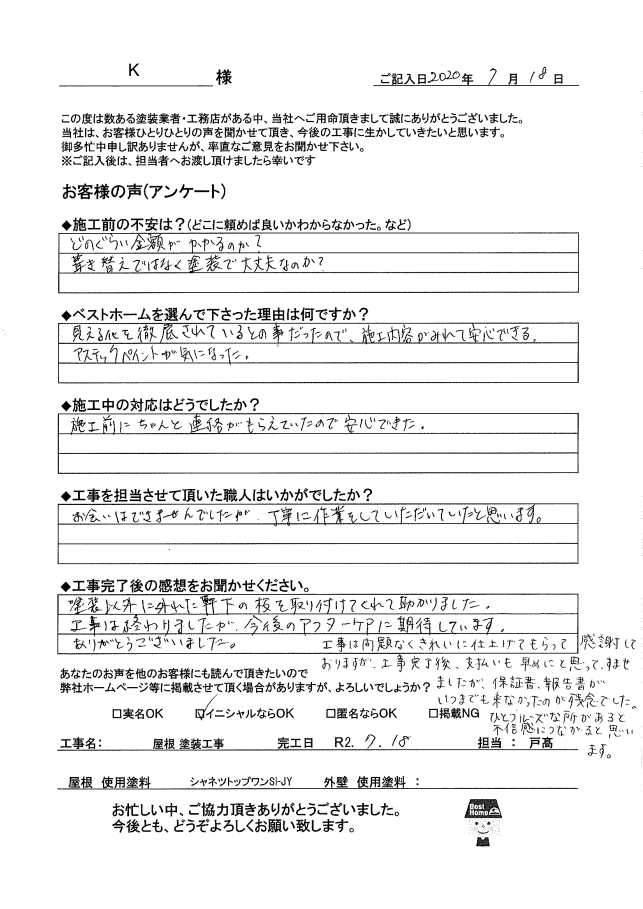 K 様
ご記入日2020年 7月 18日
この度は数ある塗装業者・工務店がある中、当社へご用命頂きまして誠にありがとうございました。
当社は、お客様ひとりひとりの声を聞かせて頂き、今後の工事に生かしていきたいと思います。
御多忙中申し訳ありませんが、率直なご意見をお聞かせ下さい。
※ご記入後は、担当者へお渡し頂けましたら幸いです
お客様の声(アンケート)
◆施工前の不安は？(どこに頼めば良いかわからなかった。など)
どのぐらい金額がかかるのか？
葺き替えではなく塗装で大丈夫なのか？
◆ベストホームを選んで下さった理由は何ですか？
見える化を徹底されているとの事だったので、施工内容がみれて安心できる。
アステックペイントが気になった。
◆施工中の対応はどうでしたか？
施工前にちゃんと連絡がもらえていたので安心できた。
◆工事を担当させて頂いた職人はいかがでしたか？
お会いはできませんでしたが、丁寧に作業をしていただいていたと思います。
◆工事完了後の感想をお聞かせください。
塗装以外に外れた軒下の板を取り付けてくれて助かりました。
工事は終わりましたが、今後のアフターケアに期待しています。
ありがとうございました。
工事は問題なくきれいに仕上げてもらって感謝して
おりますが、工事完了後、支払いも早めにと思って、すませ
ましたが、保証書、報告書が
いつまでも来なかったのが残念でした。
ひとつルーズな所があると
不信感につながると思い
ます。
あなたのお声を他のお客様にも読んで頂きたいので
弊社ホームページ等に掲載させて頂く場合がありますが、よろしいでしょうか？
□実名OK ☑イニシャルならOK □匿名ならOK □掲載NG
工事名： 屋根 塗装工事 完工日 R2. 7. 18 担当 ： 戸髙
屋根 使用塗料 シャネツトップワンSi-JY 外壁 使用塗料 ：
お忙しい中、ご協力頂きありがとうございました。
今後とも、どうぞよろしくお願い致します。
Best
Home